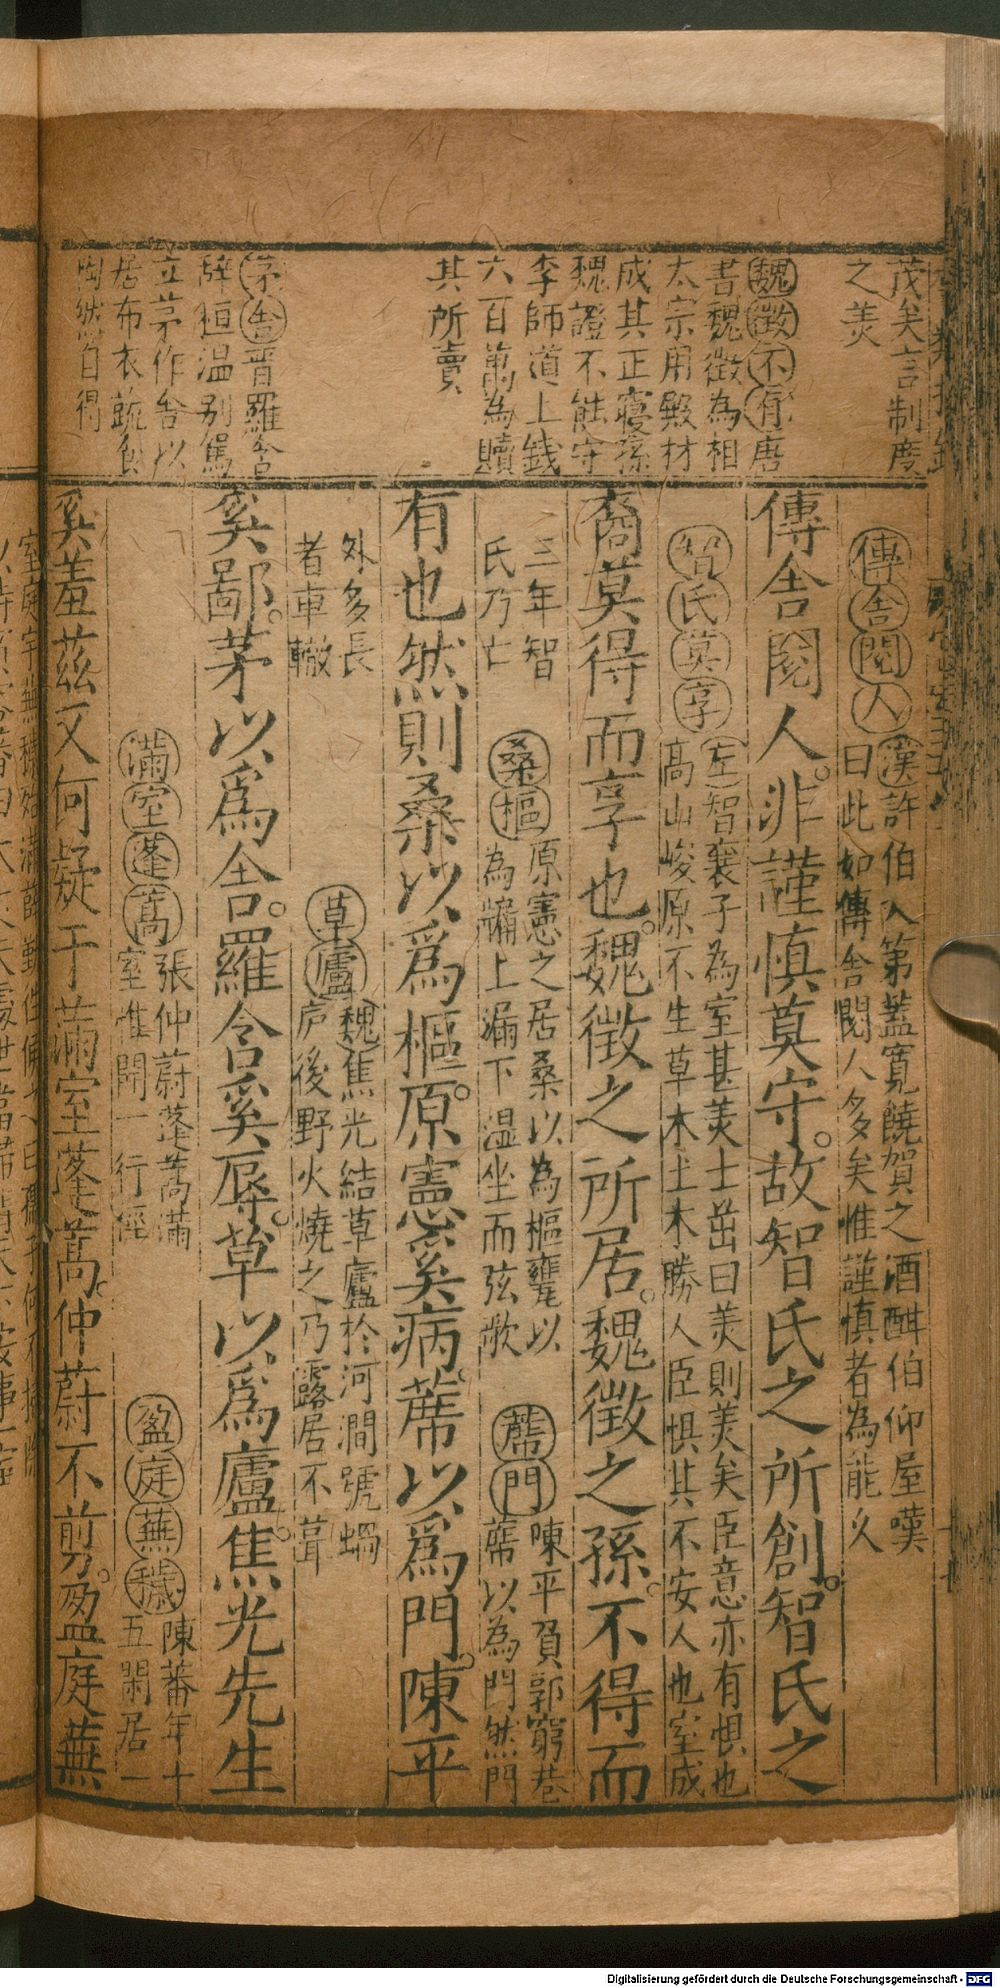 茂矣言制度
之羙
魏徵不有唐
書魏徵為相
太宗用殿材
成其正寢孫
魏證不能守
李師道上錢
六百萬為贖
其所賣
茅舍晋羅含
辭桓温别駕
立茅作舎以
居布衣蔬食
陶然自得
傳舎閱人漢許伯入第蓋寛饒賀之酒酣伯仰屋嘆
曰此如傳舎閱人多矣惟謹慎者為能久
傳舎閱人。非謹慎莫守。故智氏之所創。智氏之
智氏莫享左智襄子為室甚羙士茁曰羙則羙矣臣意亦有惧也
高山峻原不生草木土木勝人臣惧其不安人也室成
裔莫得而享也。魏徵之所居。魏徵之孫。不得而
三年智
氏乃亡
桑樞原憲之居桑以為樞甕以
為牖上漏下温坐而弦歌
蓆門陳平負郭窮巷
蓆以為門然門
有也然則桑以爲樞。原憲奚病。蓆以爲門。陳平
外多長
者車轍
草廬魏焦光結草廬於河澗號蝸
庐後野火燒之乃露居不葺
奚鄙。茅以爲舎。羅含奚辱。草以爲廬。焦光先生
滿室蓬蒿張仲蔚蓬蒿滿
室惟開一行徑
盈庭蕪穢陳蕃年十
五閑居一
奚羞茲又何疑于滿室蓬蒿。仲蔚不剪。盈庭蕪
Digitalisierung gefördert durch die Deutsche Forschungsgemeinschaft - DFG